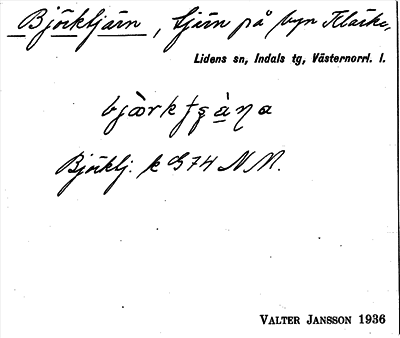 Björktjärn, tjärn på byn Klärke,
Lidens sn, Indals tg, Västernorrl. l.
Björktj. k G 74 NM.
VALTER JANSSON 1936